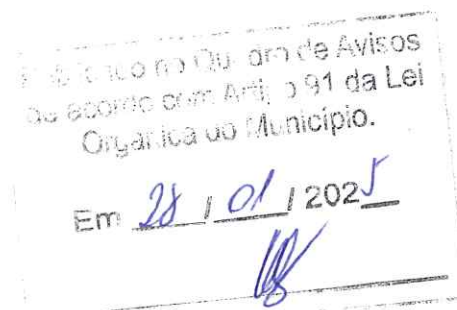 no Quadro de Avisos
de acordo com Artigo 91 da Lei
Orgânica do Município.
Em 28 / 01 / 2025